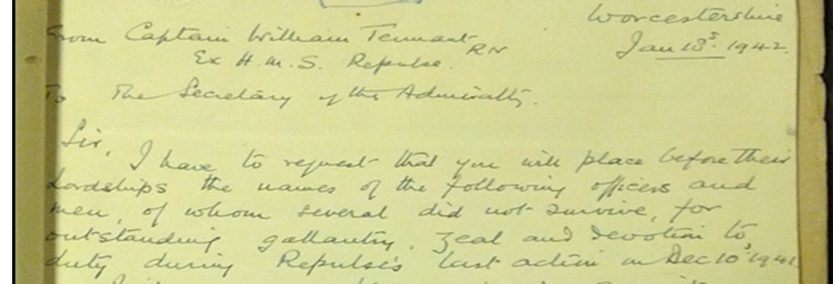 Worcestershire
From Captain William Tennant RN
Jan 18th 1942.
Ex H.M.S. Repulse.
To The Secretary of the Admiralty.
Sir,
I have to request that you will place before their
Lordships the names of the following officers and
men, of whom several did not survive, for
outstanding gallantry, zeal and devotion to
duty during Repulse's last action on Dec 10th 1941.